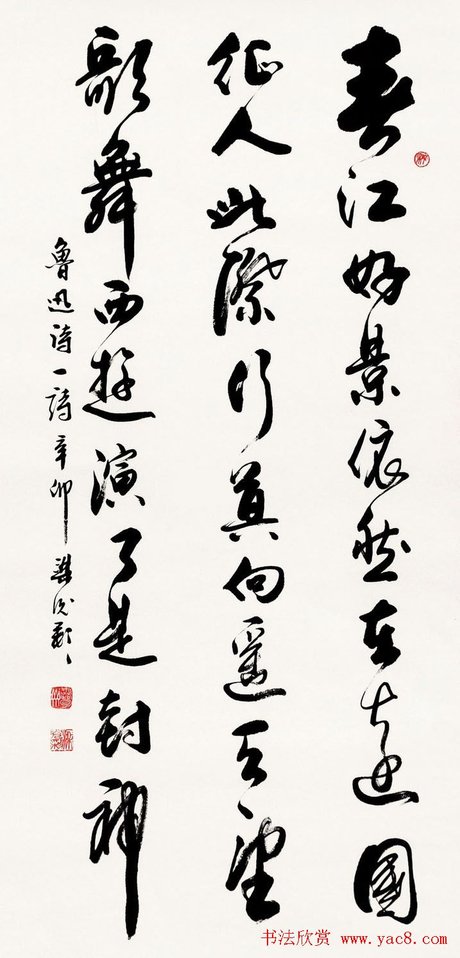 春江好景依然在遠國
征人此際行莫向遥天望
歌舞西遊演了是封神
魯迅诗一詩辛卯梁
书法欣赏 www.yac8.com